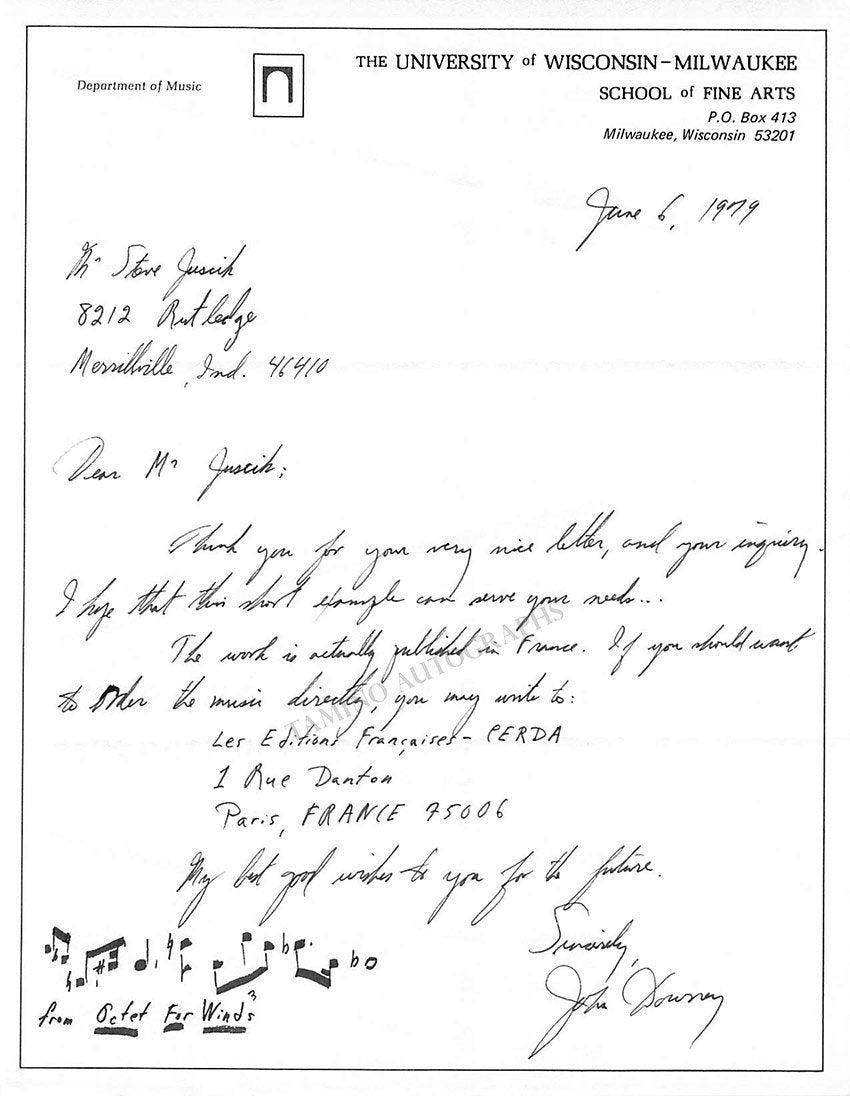 THE UNIVERSITY of WISCONSIN–MILWAUKEE
Department of Music
SCHOOL of FINE ARTS
P.O. Box 413
Milwaukee, Wisconsin 53201
June 6, 1979
Mr Steve Juscik
8212 Rutledge
Merrillville, Ind. 46410
Dear Mr Juscik;
Thank you for your very nice letter, and your inquiry.
I hope that this short example can serve your needs...
The work is actually published in France. If you should want
to order the music directly, you may write to:
TAMINO AUTOGRAPHS
Les Editions Françaises - CERDA
1 Rue Danton
Paris, FRANCE 75006
My best good wishes to you for the future.
Sincerely,
John Downey
from Octet For Winds